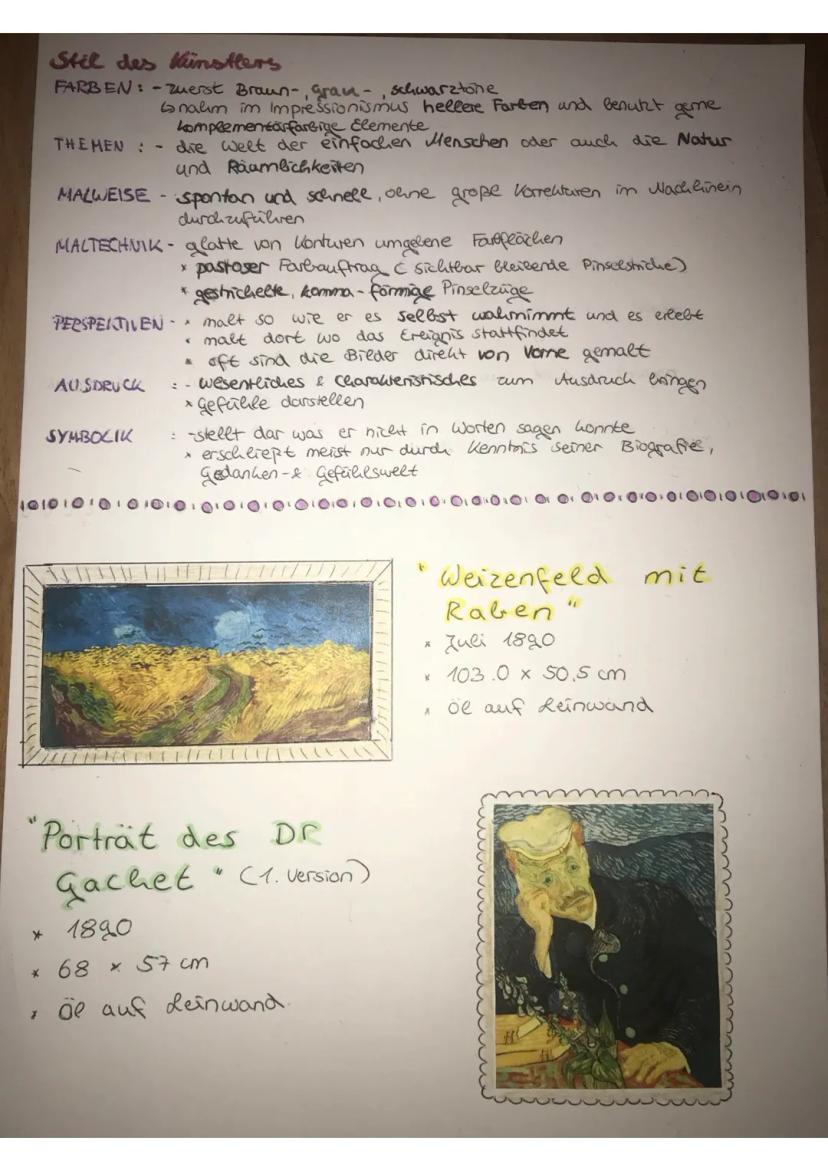 Stil des Künstlers
FARBEN : - zuerst Braun-, grau-, schwarztöne
↳ nahm im Impressionismus hellere Farben und benutzt gerne
komplementärfarbige Elemente
THEMEN : - die Welt der einfachen Menschen oder auch die Natur
und Räumlichkeiten
MALWEISE - spontan und schnell, ohne große Korrekturen im Nachhinein
durchzuführen
MALTECHNIK - glatte von Konturen umgebene Farbflächen
* pastoser Farbauftrag ( sichtbar bleibende Pinselstriche)
* gestrichelte, komma-förmige Pinselzüge
PERSPEKTIVEN - * malt so wie er es selbst wahrnimmt und es erlebt
* malt dort wo das Ereignis stattfindet
* oft sind die Bilder direkt von Vorne gemalt
AUSDRUCK : - wesentliches & charakteristisches zum Ausdruck bringen
* Gefühle darstellen
SYMBOLIK : - stellt dar was er nicht in Worten sagen konnte
* erschließt meist nur durch Kenntnis seiner Biografie,
Gedanken- & Gefühlswelt
"Weizenfeld mit
Raben"
* Juli 1890
* 103.0 x 50,5 cm
* öl auf Leinwand
"Porträt des DR
Gachet" (1. Version)
* 1890
* 68 x 57 cm
* öl auf Leinwand